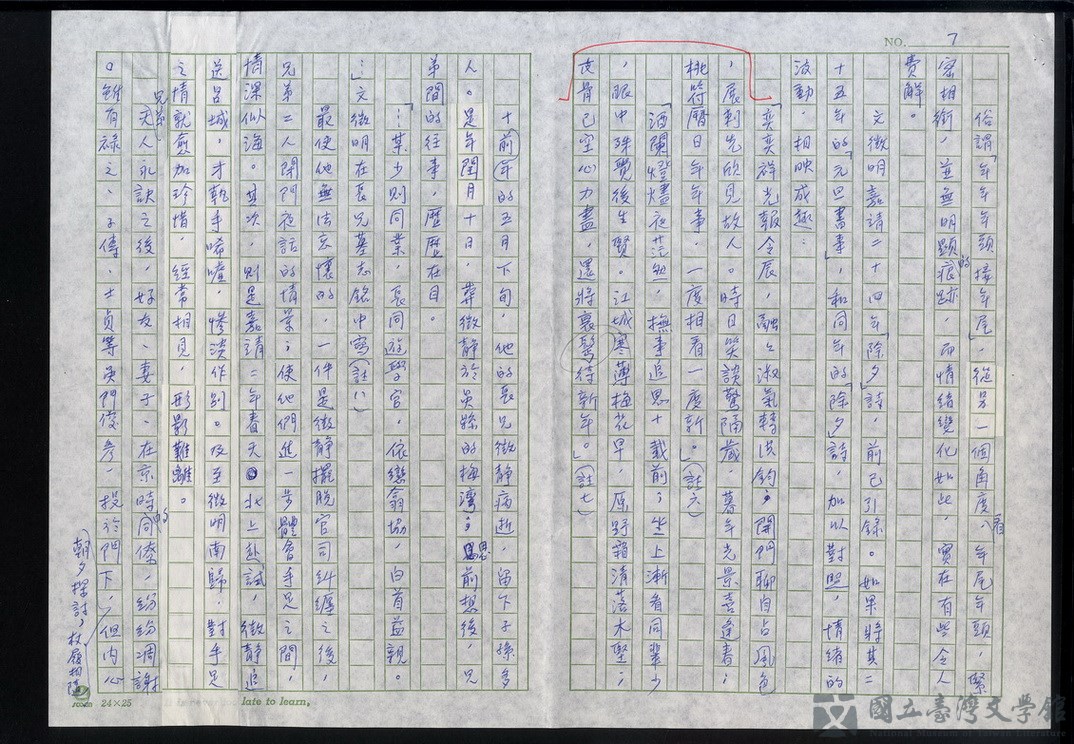 NO. 7
俗謂「年年年頭接年尾」,從另一個角度看,年尾年頭,緊
密相銜,並無明顯的痕跡,而情緒變化如此,實在有些令人
費解。
文徵明嘉靖二十四年「除夕」詩,前已引錄。如果將其二
十五年的「元旦書事」,和同年的「除夕」詩,加以對照,情緒的
波動,相映成趣:
「奕奕祥光報令辰,融融淑氣轉洪鈞;開門聊自占風色
,展刺先欣見故人。時日笑談驚隔歲,暮年光景喜逢春;
桃符曆日年年事,一度相看一度新。」(註六)
「酒闌燈燼夜茫然,撫事追思十載前;坐上漸看同輩少
,眼中殊覺後生賢。江城寒薄梅花早,原野霜清落木堅;
皮骨已空心力盡,還將衰鬢待新年。」(註七)
十前年的五月下旬,他的長兄徵靜病逝,留下子孫多
人。是年閏月十日,葬徵靜於吳縣的梅灣;思前想後,兄
弟間的往事,歷歷在目。
「…某少則同業,長同遊學官,依戀翕協,白首益親。
…」文徵明在長兄墓志銘中寫(註八)
最使他無法忘懷的,一件是徵靜擺脫官司糾纏之後,
兄弟二人閉門夜話的情景;使他們進一步體會手足之間,
情深似海。其次,則是嘉靖二年春天北上赴試,徵靜追
送呂城,才執手唏噓,慘淡作別。及至徵明南歸,對手足
之情就愈加珍惜,經常相見,形影難離。
兄弟天人永訣之後,好友、妻子、在京時的同僚,紛紛凋謝
。雖有祿之、子傳、士貞等吳門俊彥,投於門下,朝夕探討,杖履相隨,但內心
24×25
late to learn,
國立臺灣文學館
National Museum of Taiwan Literature